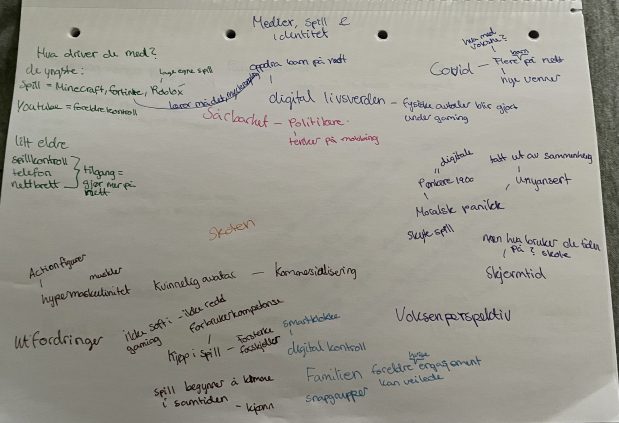 Medier, spill &
identitet
Hva driver de med?
de yngste:
lage egne spill
Spill = Minecraft, fortnite, Roblox
Youtube = foreldrekontroll
oppdra barn på nett
digital livsverden - fysiske avtaler blir gjort
under gaming
Sårbarhet - Politikere
tenker på mobbing
hva med
voksne?
barn
Covid - Flere på nett
nye venner
litt eldre
spillkontroll
telefon
nettbrett
tilgang =
gjør mer på
nett
digitale
Pønkere 1900
tatt ut av sammenheng
Unyansert
Moralsk panikk
skyte spill
men hva bruker de tiden
på? skole
Skjermtid
Voksenperspektiv
Skolen
Actionfigurer
muskler
hypermaskulinitet
Kvinnelig avatar - Kommersialisering
Utfordringer
ikke satt i - ikke redd
gaming
Forbrukerkompetanse
Kjøp i spill - forsterke
forskjeller
smartklokke
digital kontroll
Familien
foreldre engasjement
kan veilede
snapgrupper
spill begynner å komme
i samtiden - kjønn